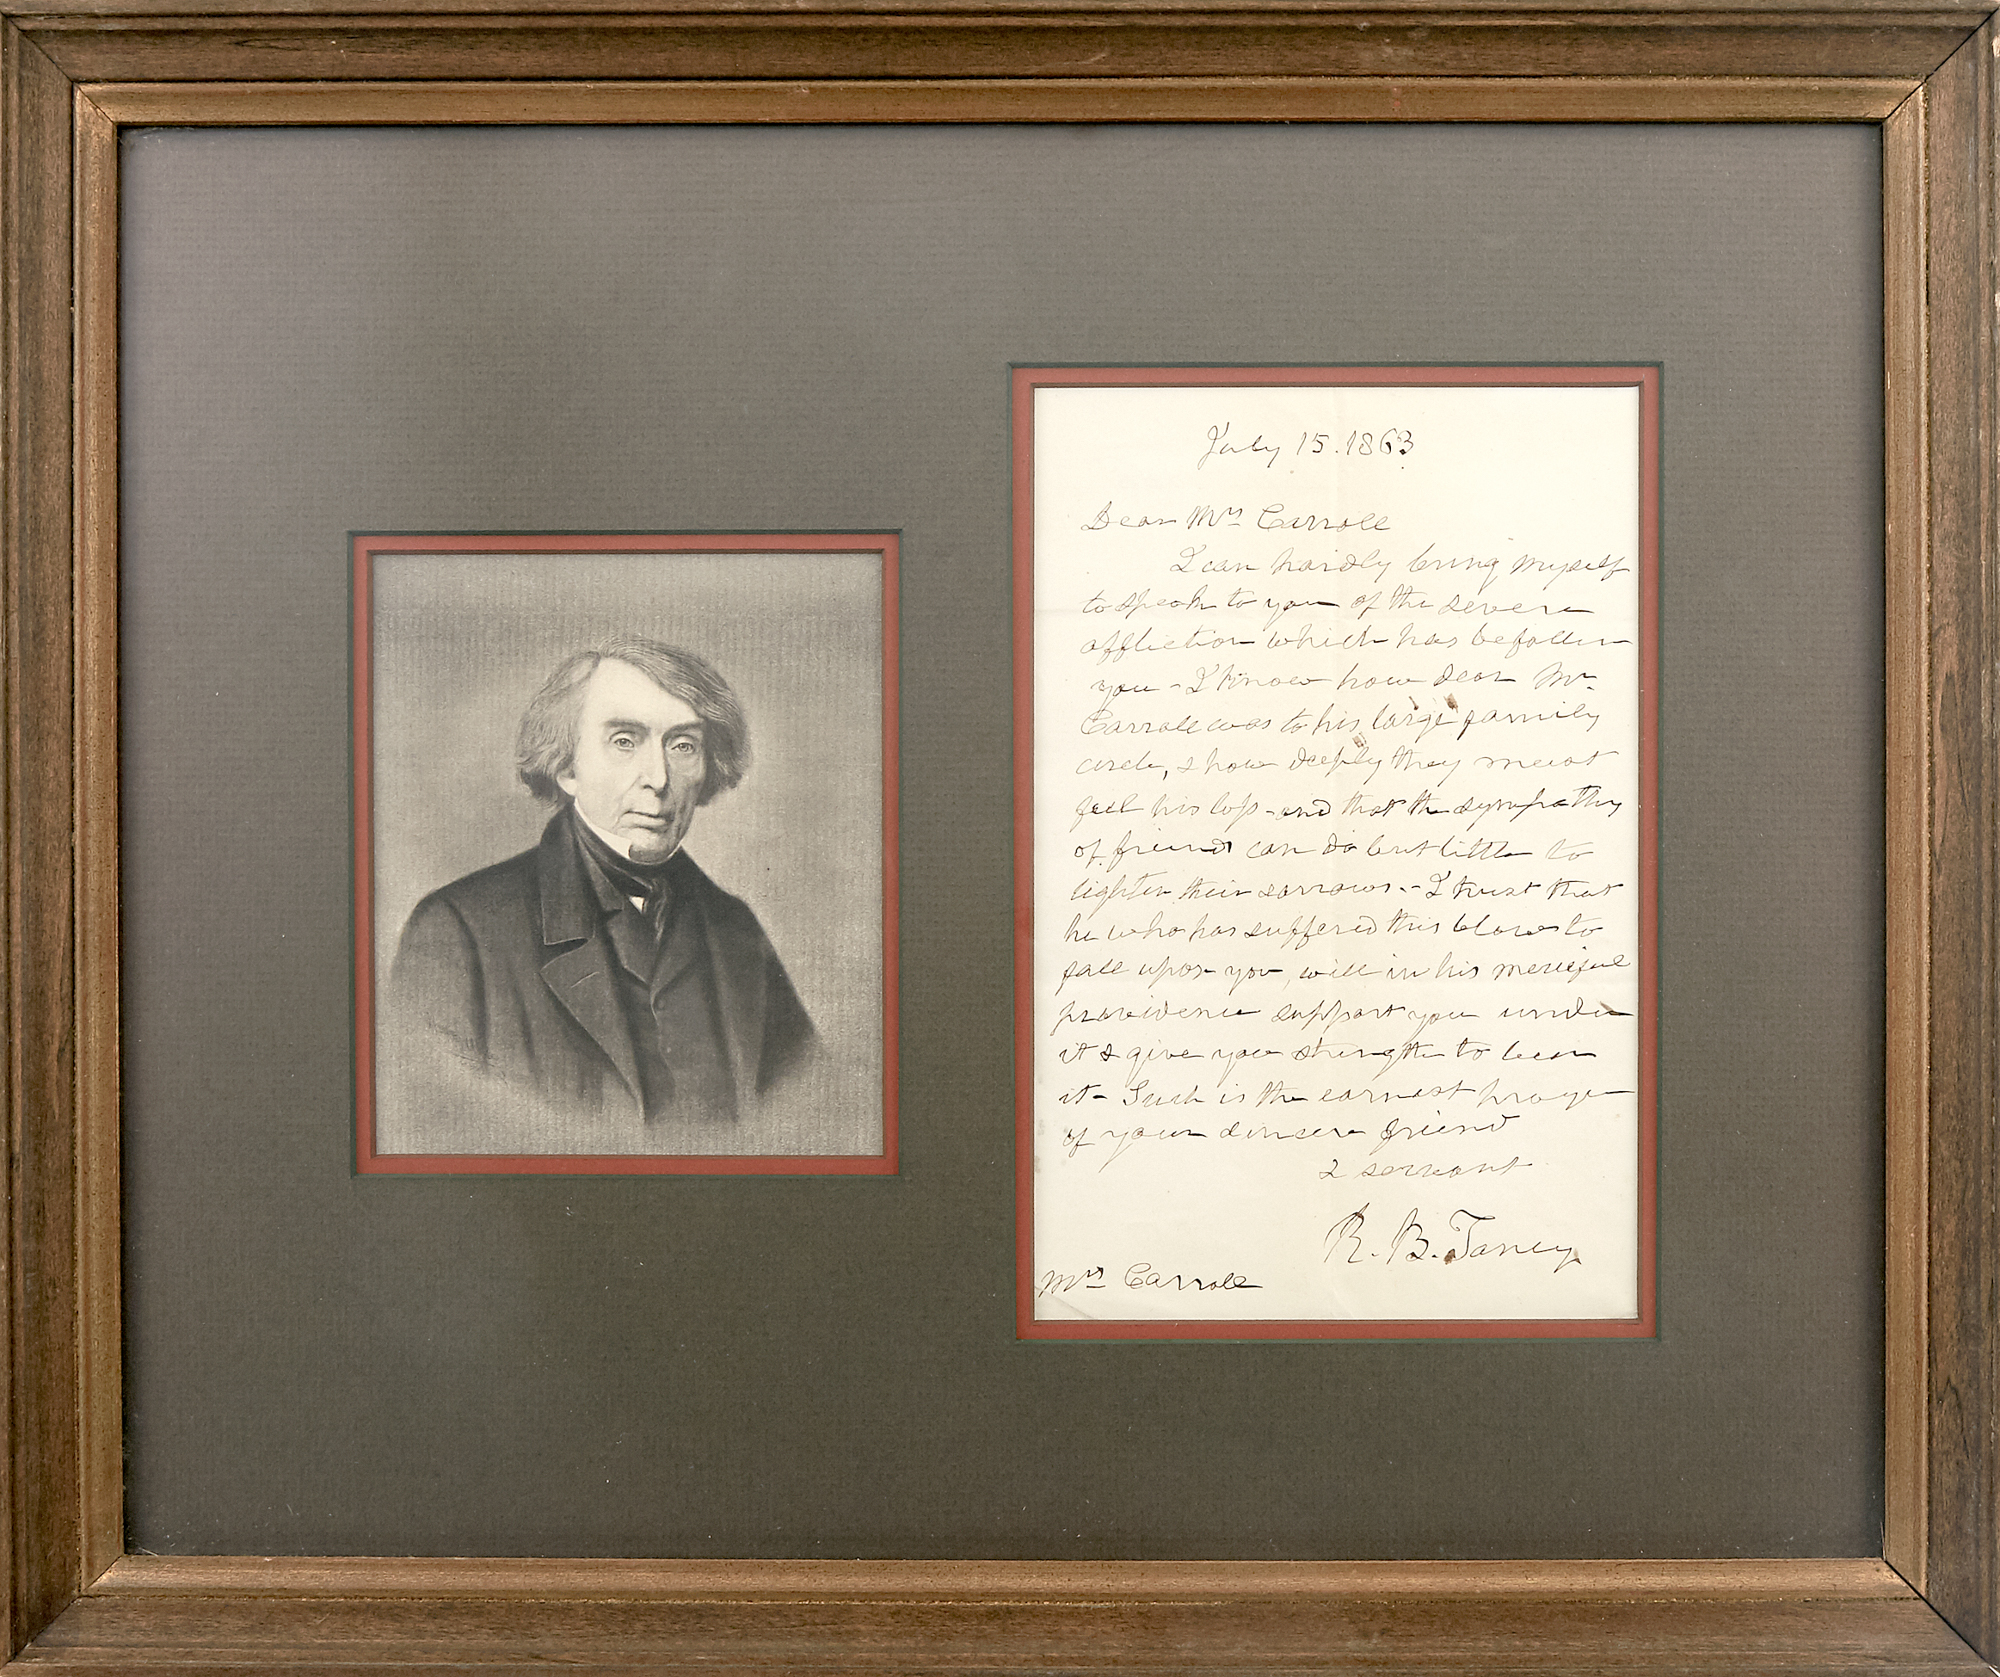 July 15. 1863
Dear Mrs Carroll
I can hardly bring myself
to speak to you of the severe
affliction which has befallen
you - I know how dear Mr
Carroll was to his large family
circle, & how deeply they must
feel his loss - and that the sympathy
of friends can do but little to
lighten their sorrows. - I trust that
he who has suffered this blow to
fall upon you, will in his merciful
providence support you under
it & give you strength to bear
it - Such is the earnest prayer
of your sincere friend
& servant
R. B. Taney
Mrs Carroll